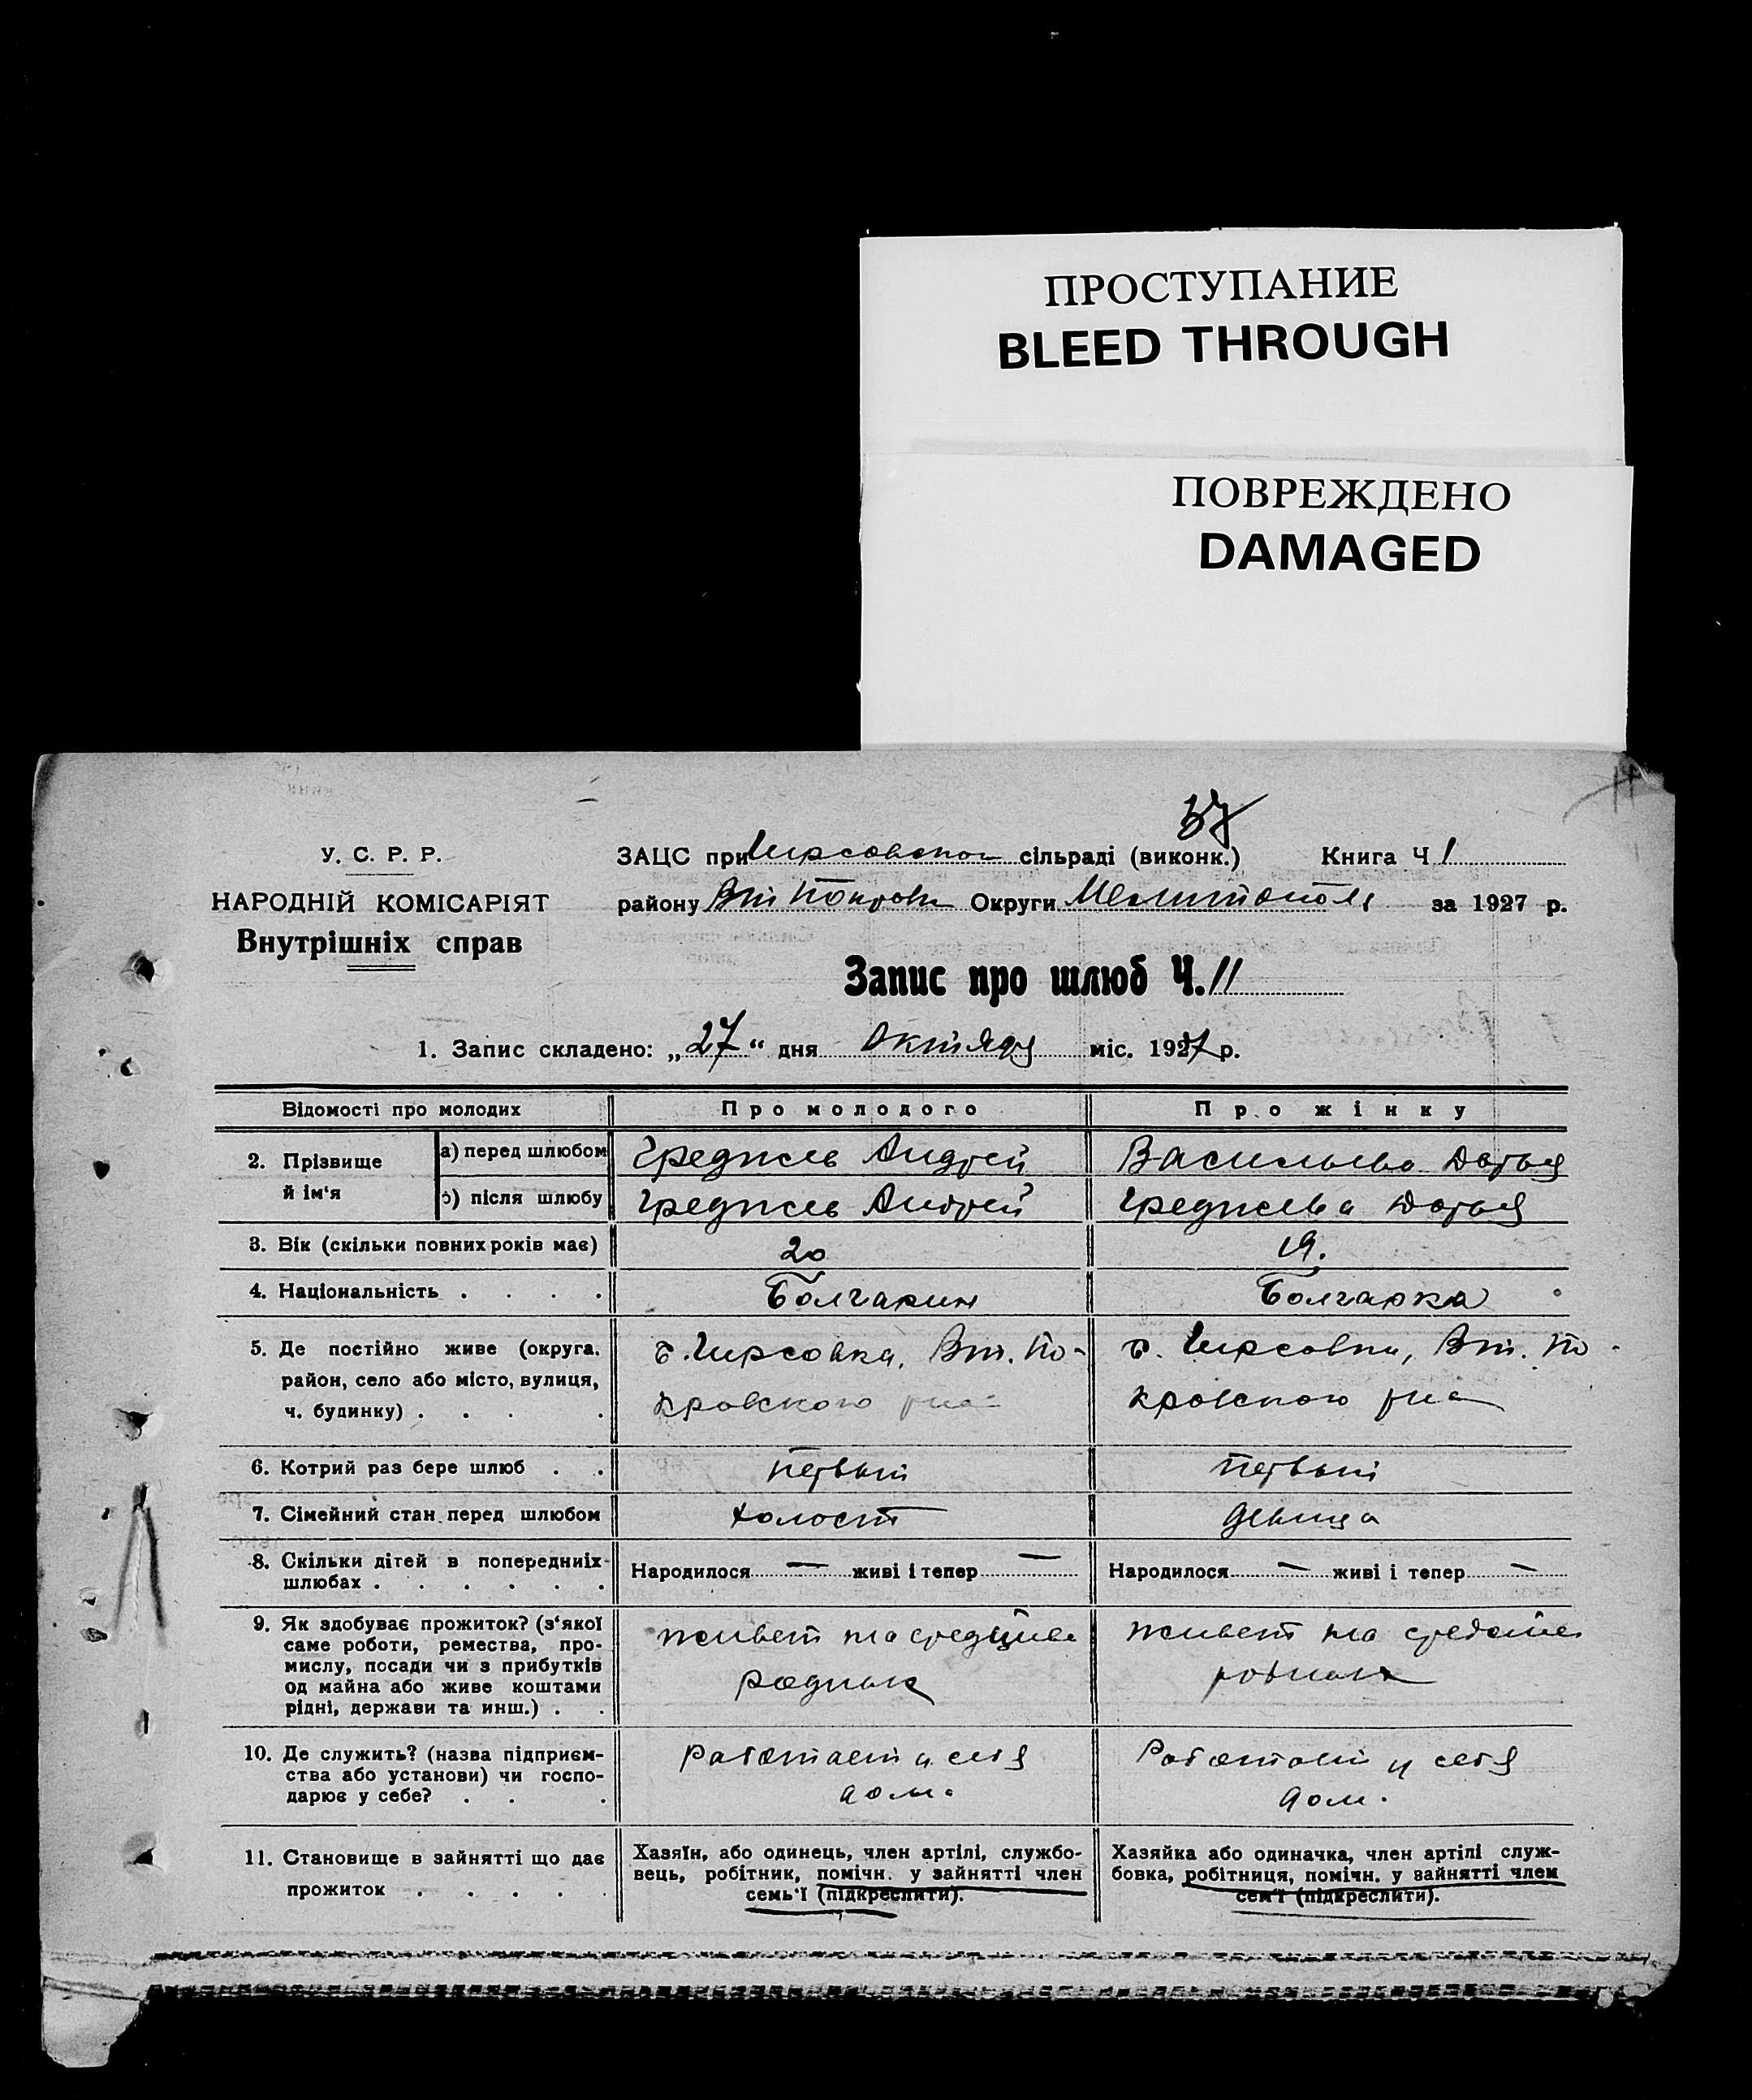 ПРОСТУПАНИЕ
BLEED THROUGH
ПОВРЕЖДЕНО
DAMAGED
37
У. С. Р. Р.
НАРОДНІЙ КОМІСАРІЯТ
Внутрішніх справ
ЗАЦС при Гирсовской сільраді (виконк.) Книга Ч 1
району Вт Покров Округи Мелитополь за 1927 р.
Запис про шлюб Ч. 11
1. Запис складено: „27“ дня Октября міс. 1927 р.
Відомості про молодих Про молодого Про жінку
2. Прізвище й ім‘я
а) перед шлюбом Греджев Андрей Васильева Дарья
б) після шлюбу Греджев Андрей Греджева Дарья
3. Вік (скільки повних років має) 20 19.
4. Національність . . . . Болгарин Болгарка
5. Де постійно живе (округа, район, село або місто, вулиця, ч. будинку) . . .
с. Гирсовка, Вт. По-
кровского р-на
с. Гирсовка, Вт. По-
кровского р-на
6. Котрий раз бере шлюб . . Первый Первый
7. Сімейний стан перед шлюбом холост девица
8. Скільки дітей в попередніх шлюбах . . . . . .
Народилося — живі і тепер — Народилося — живі і тепер —
9. Як здобуває прожиток? (з‘якої
саме роботи, ремества, про-
мислу, посади чи з прибутків
од майна або живе коштами
рідні, держави та инш.) . .
живет на средства
родных
живет на средства
родных
10. Де служить? (назва підприєм-
ства або установи) чи госпо-
дарює у себе? . . .
Работает у себя
дом.
Работает у себя
дом.
11. Становище в зайнятті що дає
прожиток . . . . .
Хазяїн, або одинець, член артілі, службо-
вець, робітник, помічн. у зайнятті член
семь‘ї (підкреслити).
Хазяйка або одиначка, член артілі служ-
бовка, робітниця, помічн. у зайнятті член
сем‘ї (підкреслити).